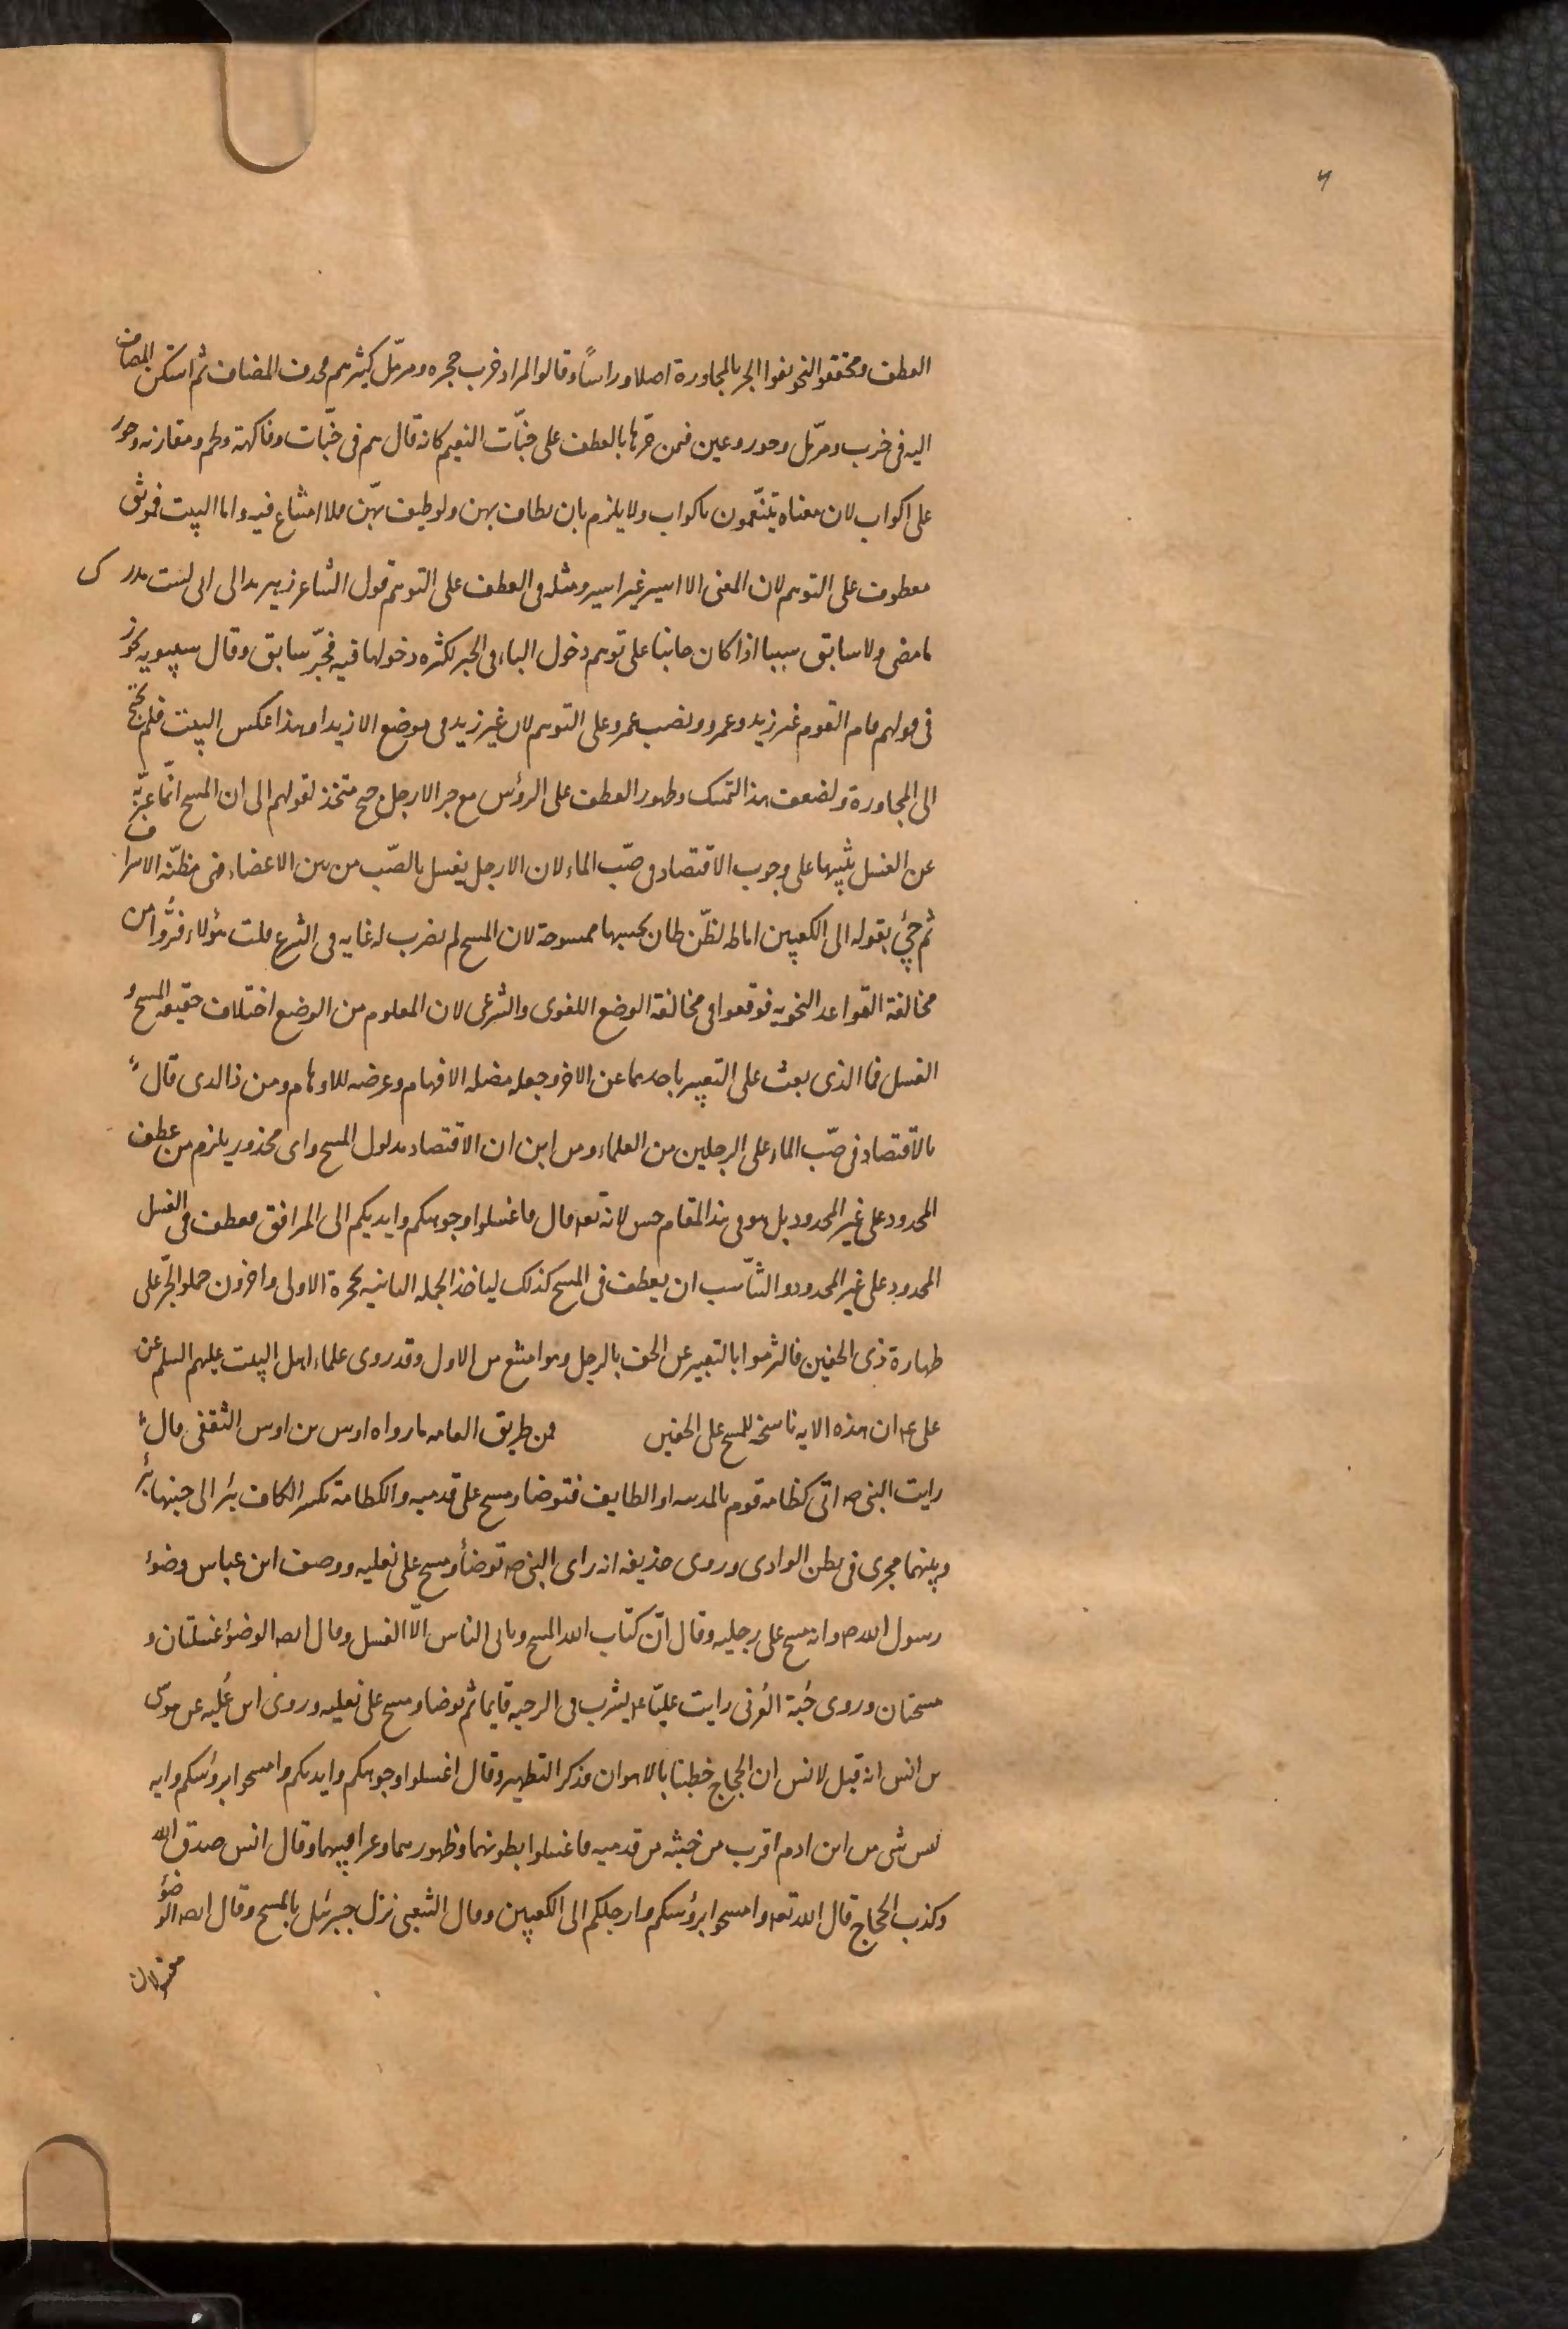 ٦
العطف ومحققو النحو نفوا الجر بالمجاورة اصلا وراسًا وقالوا المراد خرب حجره ومزمّل كبيرهم فحذف المضاف ثم استكن المضاف
اليه فى خرب ومزمّل وحور وعين فمن جرّها بالعطف على جنّات النعيم كانه قال هم فى جنّات وفاكهة ولحم ومقارنه وحور
على اكواب لان معناه يتنعّمون باكواب ولا يلزم بان يطاف بهن ولو طيف بهّن فلا امتناع فيه واما البيت فموثق
معطوف على التوهم لان المعنى الا اسير غير اسير ومثله فى العطف على التوهم قول الشاعر زهير بدا لى انى لست مدرك
ما مضى ولا سابق سببا اذا كان جائيا على توهم دخول الباء فى الخبر لكثره دخولها فيه فجرّ سابق وقال سيبويه يجوز
فى قولهم قام القوم غير زيد وعمرو ونصب عمرو على التوهم لان غير زيد فى موضع الا زيدا وهذا عكس البيت فلم يحتج
الى المجاورة ولضعف هذا التمسك وظهور العطف على الرؤس مع جر الارجل جح متخذ لقولهم الى ان المسح انّما عبّر به
عن الغسل تنبيها على وجوب الاقتصاد فى صبّ الماء لان الارجل يغسل بالصّب من بين الاعضاء فهى مظنّه الاسراف
ثم جئ بقوله الى الكعبين اماطه لظنّ ظان يحسبها ممسوحة لان المسح لم يضرب له غايه فى الشرع قلت هؤلاء فرّوا من
مخالفة القواعد النحويه فوقعوا فى مخالفة الوضع اللغوى والشرعى لان المعلوم من الوضع اختلاف حقيقه المسح و
الغسل فما الذى بعث على التعبير باحدهما عن الاخر وجعله مضله الافهام وعرضه للاوهام ومن ذا الذى قال
بالاقتصاد فى صبّ الماء على الرجلين من العلماء ومن اين ان الاقتصاد مدلول المسح واى محذور يلزم من عطف
المحدود على غير المحدود بل هو فى هذا المقام حسن لانه تعه قال فاغسلوا وجوهكم وايديكم الى المرافق فعطف فى الغسل
المحدود على غير المحدود والتنّاسب ان يعطف فى المسح كذلك لياخذ الجمله الثانيه بحجزة الاولى واخرون حملوا الجّر على
طهارة ذى الخفين فالتزموا بالتعبير عن الخف بالرجل وهو امنع من الاول وقد روى علماء اهل البيت عليهم السلم عن
على عه ان هذه الايه ناسخه للمسح على الخفين فمن طريق العامه ما رواه اوس بن اوس الثقفى قال
رايت النبى صه اتى كظامه قوم بالمدينه او الطايف فتوضا ومسح على قدميه والكظامة بكسر الكاف بئر الى جنبها بئر
وبينهما مجرى فى بطن الوادى وروى حذيفه انه راى النبى صه توضأ ومسح على نعليه ووصف ابن عباس وضوء
رسول الله صه وانه مسح على رجليه وقال انّ كتاب الله المسح ويابى الناس الّا الغسل وقال ايضا الوضوء غسلتان و
مسحتان وروى حَبّة العُرنى رايت عليّا عه يشرب فى الرحبه قايما ثم توضا ومسح على نعليه وروى ابن عُليه عن موسى
بن انس انه قيل لانس ان الحجاج خطبنا بالاهواز فذكر التطهير وقال اغسلوا وجوهكم وايديكم وامسحوا برؤسكم وانه
ليس شى من ابن ادم اقرب من خبثه من قدميه فاغسلوا بطونهما وظهورهما وعراقيبهما وقال انس صدق الله
وكذب الحجاج قال الله تعه وامسحوا برؤسكم وارجلكم الى الكعبين وقال الشعبى نزل جبرئيل بالمسح وقال ايضا الوضوء